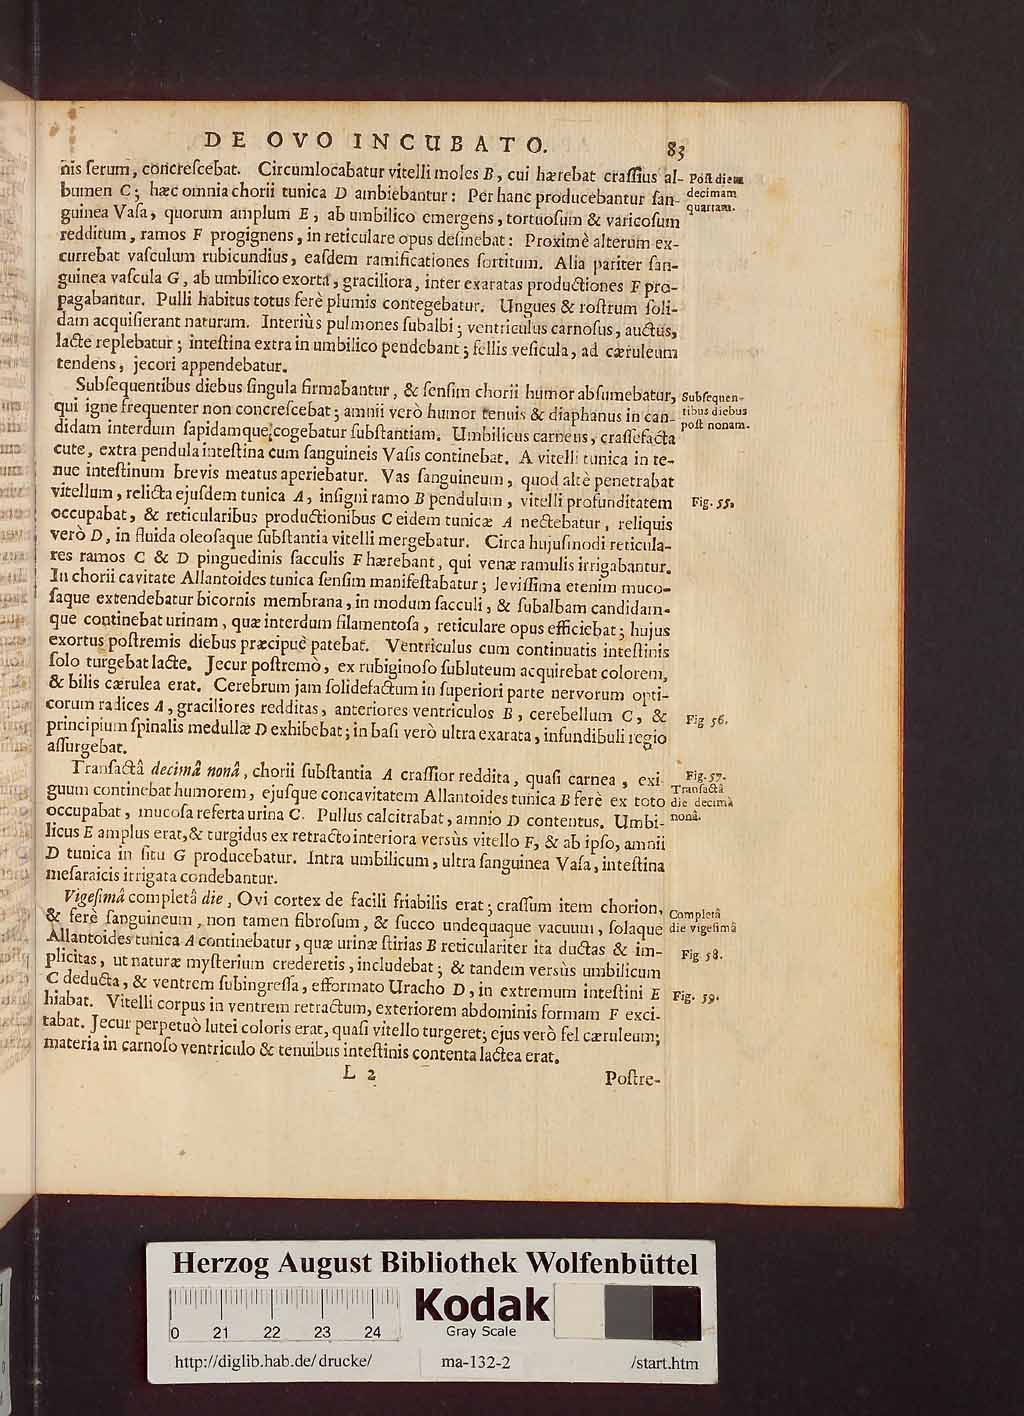 DE OVO INCUBATO. 83
nis ſerum, concreſcebat. Circumlocabatur vitelli moles B, cui hærebat craſſius al-
bumen C; hæc omnia chorii tunica D ambiebantur: Per hanc producebantur ſan-
guinea Vaſa, quorum amplum E, ab umbilico emergens, tortuoſum & varicoſum
redditum, ramos F progignens, in reticulare opus deſinebat: Proximè alterum ex-
currebat vaſculum rubicundius, eaſdem ramificationes ſortitum. Alia pariter ſan-
guinea vaſcula G, ab umbilico exorta, graciliora, inter exaratas productiones F pro-
pagabantur. Pulli habitus totus ferè plumis contegebatur. Ungues & roſtrum ſoli-
dam acquiſierant naturam. Interiùs pulmones ſubalbi; ventriculus carnoſus, auctus,
lacte replebatur; inteſtina extra in umbilico pendebant; fellis veſicula, ad cæruleum
tendens, jecori appendebatur.
Poſt diem
decimam
quartam.
Subſequentibus diebus ſingula firmabantur, & ſenſim chorii humor abſumebatur,
qui igne frequenter non concreſcebat; amnii verò humor tenuis & diaphanus in can-
didam interdum ſapidamque cogebatur ſubſtantiam. Umbilicus carneus, craſſefacta
cute, extra pendula inteſtina cum ſanguineis Vaſis continebat. A vitelli tunica in te-
nue inteſtinum brevis meatus aperiebatur. Vas ſanguineum, quod altè penetrabat
vitellum, relicta ejuſdem tunica A, inſigni ramo B pendulum, vitelli profunditatem
occupabat, & reticularibus productionibus C eidem tunicæ A nectebatur, reliquis
verò D, in fluida oleoſaque ſubſtantia vitelli mergebatur. Circa hujuſmodi reticula-
res ramos C & D pinguedinis ſacculis F hærebant, qui venæ ramulis irrigabantur.
In chorii cavitate Allantoides tunica ſenſim manifeſtabatur; leviſſima etenim muco-
ſaque extendebatur bicornis membrana, in modum ſacculi, & ſubalbam candidam-
que continebat urinam, quæ interdum filamentoſa, reticulare opus efficiebat; hujus
exortus poſtremis diebus præcipuè patebat. Ventriculus cum continuatis inteſtinis
ſolo turgebat lacte. Jecur poſtremò, ex rubiginoſo ſubluteum acquirebat colorem,
& bilis cærulea erat. Cerebrum jam ſolidefactum in ſuperiori parte nervorum opti-
corum radices A, graciliores redditas, anteriores ventriculos B, cerebellum C, &
principium ſpinalis medullæ D exhibebat; in baſi verò ultra exarata, infundibuli regio
aſſurgebat.
Subſequen-
tibus diebus
poſt nonam.
Fig. 55.
Fig 56.
Tranſactâ decimâ nonâ, chorii ſubſtantia A craſſior reddita, quaſi carnea, exi
guum continebat humorem, ejuſque concavitatem Allantoides tunica B ferè ex toto
occupabat, mucoſa referta urina C. Pullus calcitrabat, amnio D contentus. Umbi-
licus E amplus erat, & turgidus ex retracto interiora versùs vitello F, & ab ipſo, amnii
D tunica in ſitu G producebatur. Intra umbilicum, ultra ſanguinea Vaſa, inteſtina
meſaraicis irrigata condebantur.
Fig. 57.
Tranſactâ
die decimâ
nonâ.
Vigeſimâ completâ die, Ovi cortex de facili friabilis erat; craſſum item chorion,
& ferè ſanguineum, non tamen fibroſum, & ſucco undequaque vacuum, ſolaque
Allantoides tunica A continebatur, quæ urinæ ſtirias B reticulariter ita ductas & im-
plicitas, ut naturæ myſterium crederetis, includebat; & tandem versùs umbilicum
C deducta, & ventrem ſubingreſſa, efformato Uracho D, in extremum inteſtini E
hiabat. Vitelli corpus in ventrem retractum, exteriorem abdominis formam F exci-
tabat. Jecur perpetuò lutei coloris erat, quaſi vitello turgeret; ejus verò fel cæruleum;
materia in carnoſo ventriculo & tenuibus inteſtinis contenta lactea erat.
Completâ
die vigeſimâ
Fig. 58.
Fig. 59.
L 2 Poſtre-
Herzog August Bibliothek Wolfenbüttel
0 21 22 23 24
Kodak
Gray Scale
http://diglib.hab.de/drucke/ ma-132-2 /start.htm